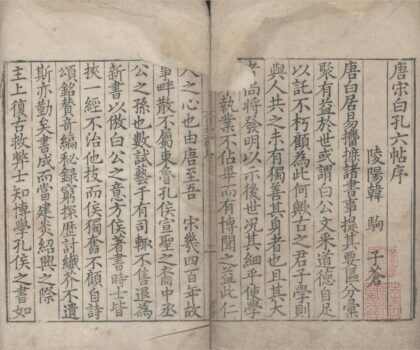 唐宋白孔六帖序
陵陽韓 駒 子蒼
唐白居易攟摭諸書事提其要區分彙
聚有益於世或謂白公文采道德自足
以託不朽顧為此何歟古之君子學則
與人共之未有獨善其身者也且其大
者尚將發明以示後世況其細乎使學
執業不佔畢而有博聞之益此仁
人之心也由唐至吾 宋幾四百年故
事畔散不屬東魯孔侯宣聖之裔中丞
公之孫也數試藝于有司輒不售退為
新書以倣白公之意方侯著書時士皆
挾一經不治他技而侯獨奮不顧自詩
頌銘贊奇編秘錄窮探歷討纖芥不遺
斯亦勤矣書成而當建炎紹興之際
主上復古救弊士知博學孔侯之書如